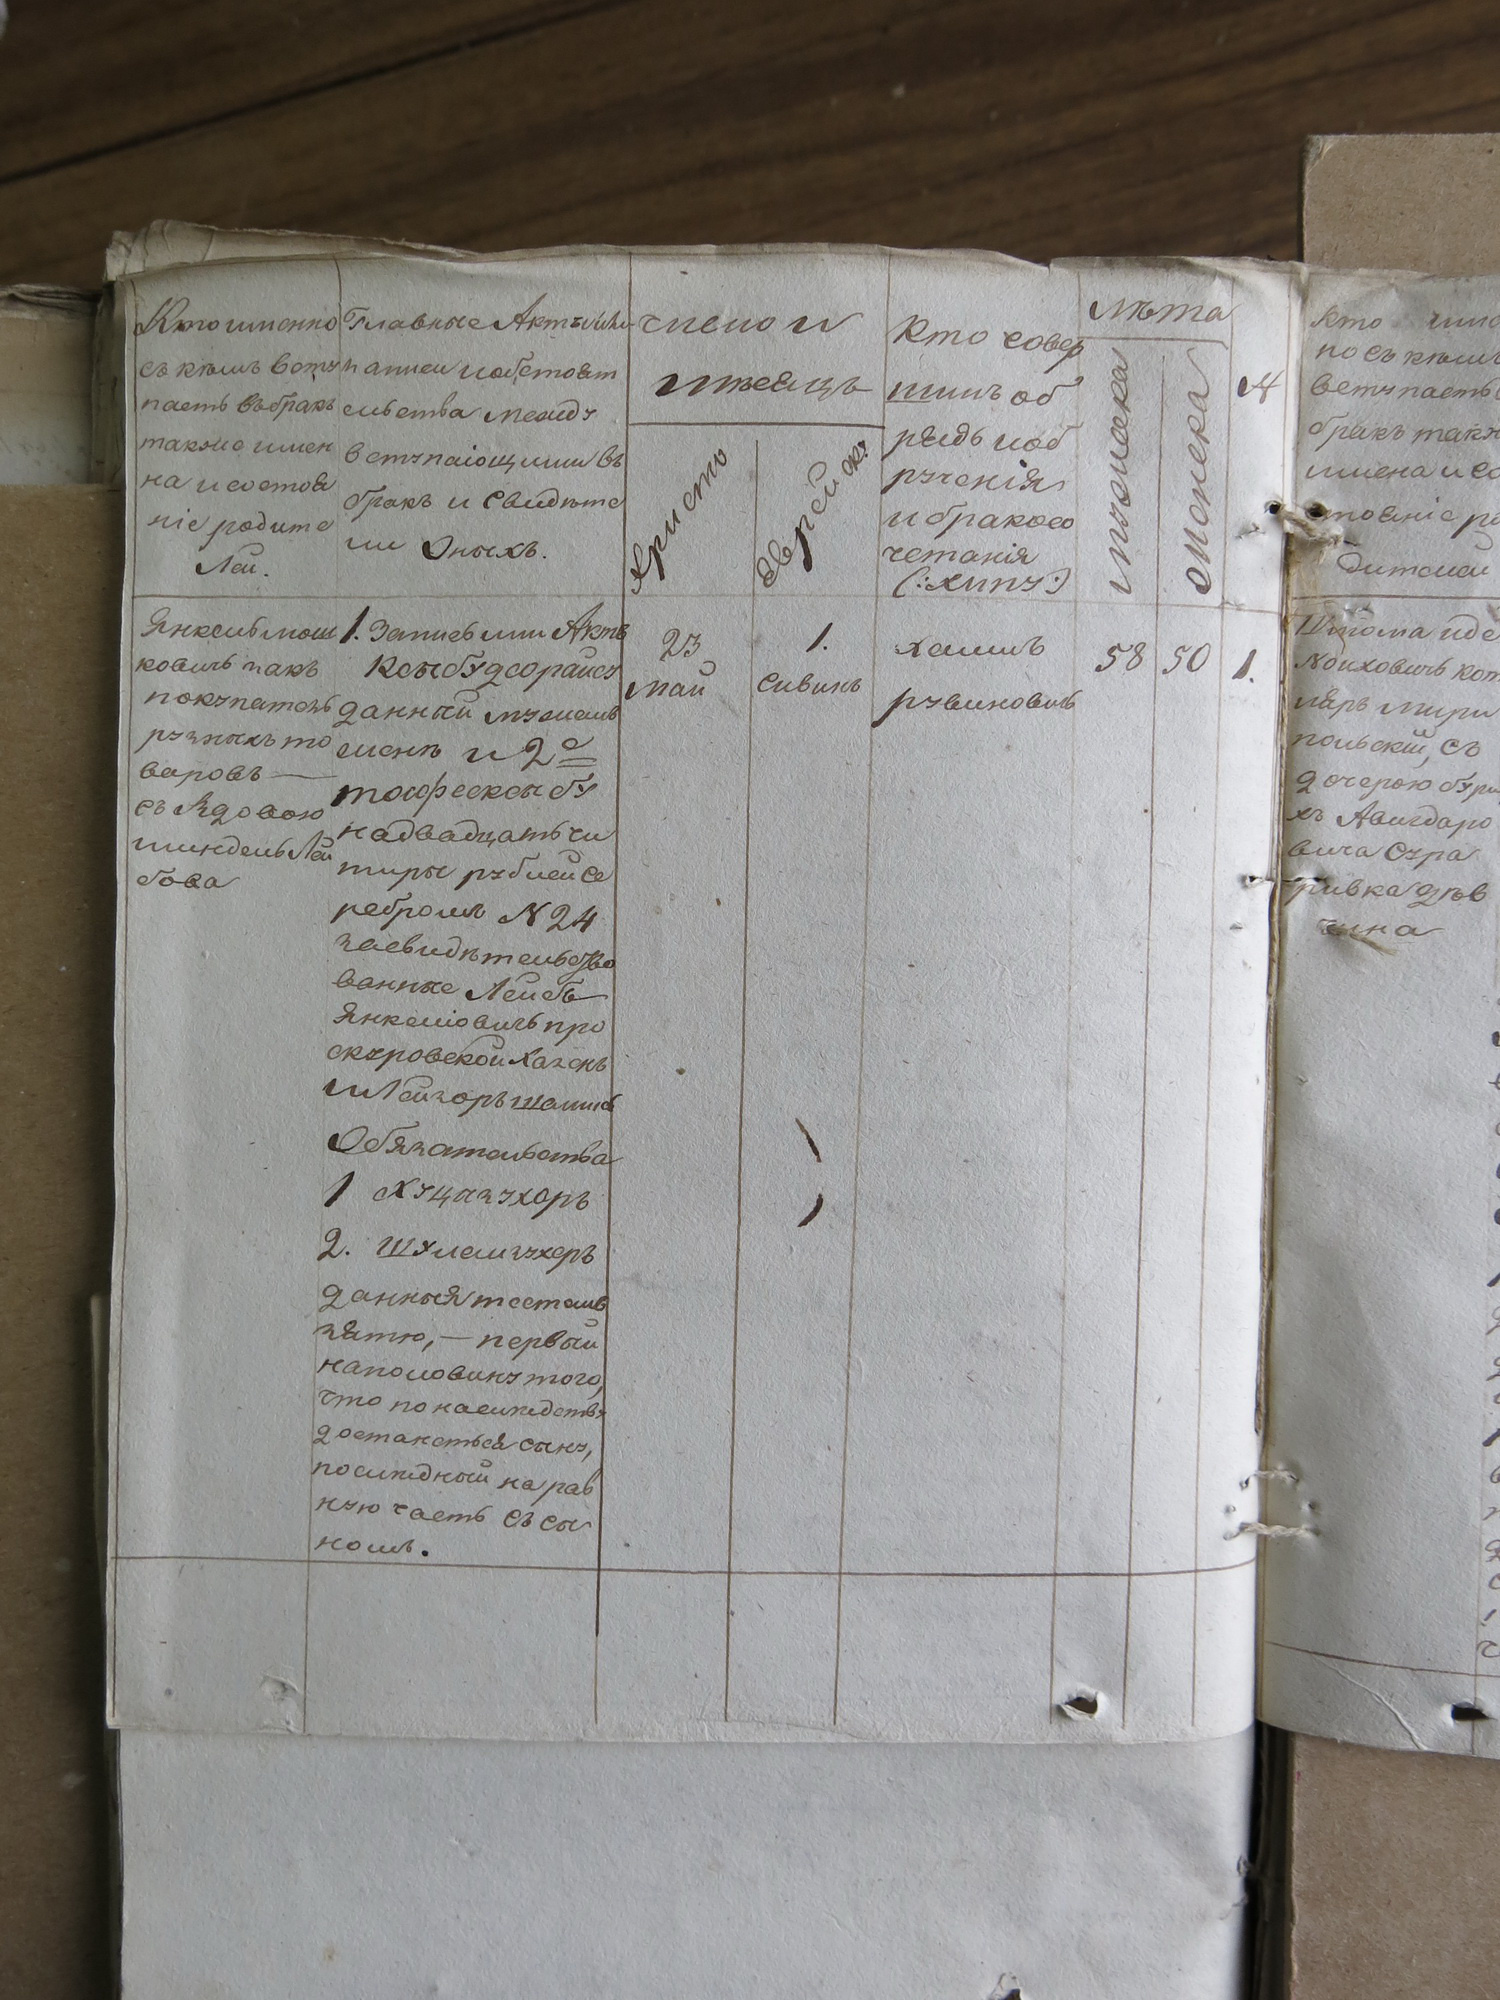 Кто именно
съ кѣмъ всту
паетъ въ бракъ
также имен
на и состоя
ніе родите
лей.
Главные Акты или
записи и обстоят
ельства между
вступающими въ
бракъ и свидѣте
ли Оныхъ.
число и
мѣсяцъ
Христо
Еврейск:
Кто совер
шилъ об
рядъ и об
рученія
и бракосо
четанія
(:хупу:)
Лѣта
мужеска
женска
№
Янкель Мош
ковичъ
покупатель
разныхъ то
варовъ —
съ Вдовою
Шиндель Лей
бова
1. Запись или Актъ
Ксыбудеорайсу
данный мужемъ
женѣ и 2е
тойфесксыбу
на двадцать чи
тыры рублей се
ребромъ N 24
засвидѣтельство
ванные Лейбъ
Янкеліовичъ про
скуровской Хазенъ
и Лейзоръ шамис
Обязательства
1 Хуцазухоръ
2. Шулемзухеръ
данныя тестемъ
зятю, — первый
на половину того,
что по наслѣдству
достанеться сыну,
послѣдный на рав
ную часть съ сы
номъ.
23
май
1.
сивинъ
хаимъ
рувиновичъ
58
50
1.
Кто име
но съ кѣмъ
вступаетъ
бракъ такж
имена и со
тояніе ро
дителей
Шлома иде
Ноиховичъ кот
ляръ мири
польскій, съ
дочерою бур
хъ Авигдаро
вича Сура
ривка дѣв
чина